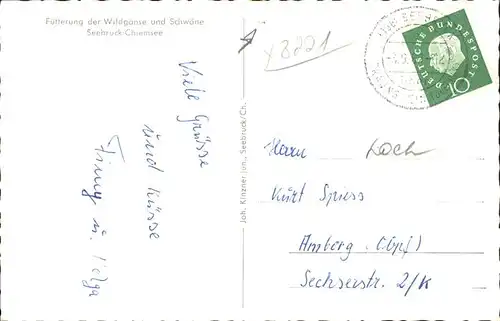 Fütterung der Wildgänse und Schwäne
Seebruck-Chiemsee
Viele Grüsse
und Küsse
u. Helga
Joh. Kinzner jun., Seebruck/Ch.
x 3221
DEUTSCHE BUNDESPOST
10
Herrn Koch
Kurt Spiess
Amberg (Opf)
Sechserstr. 2/K